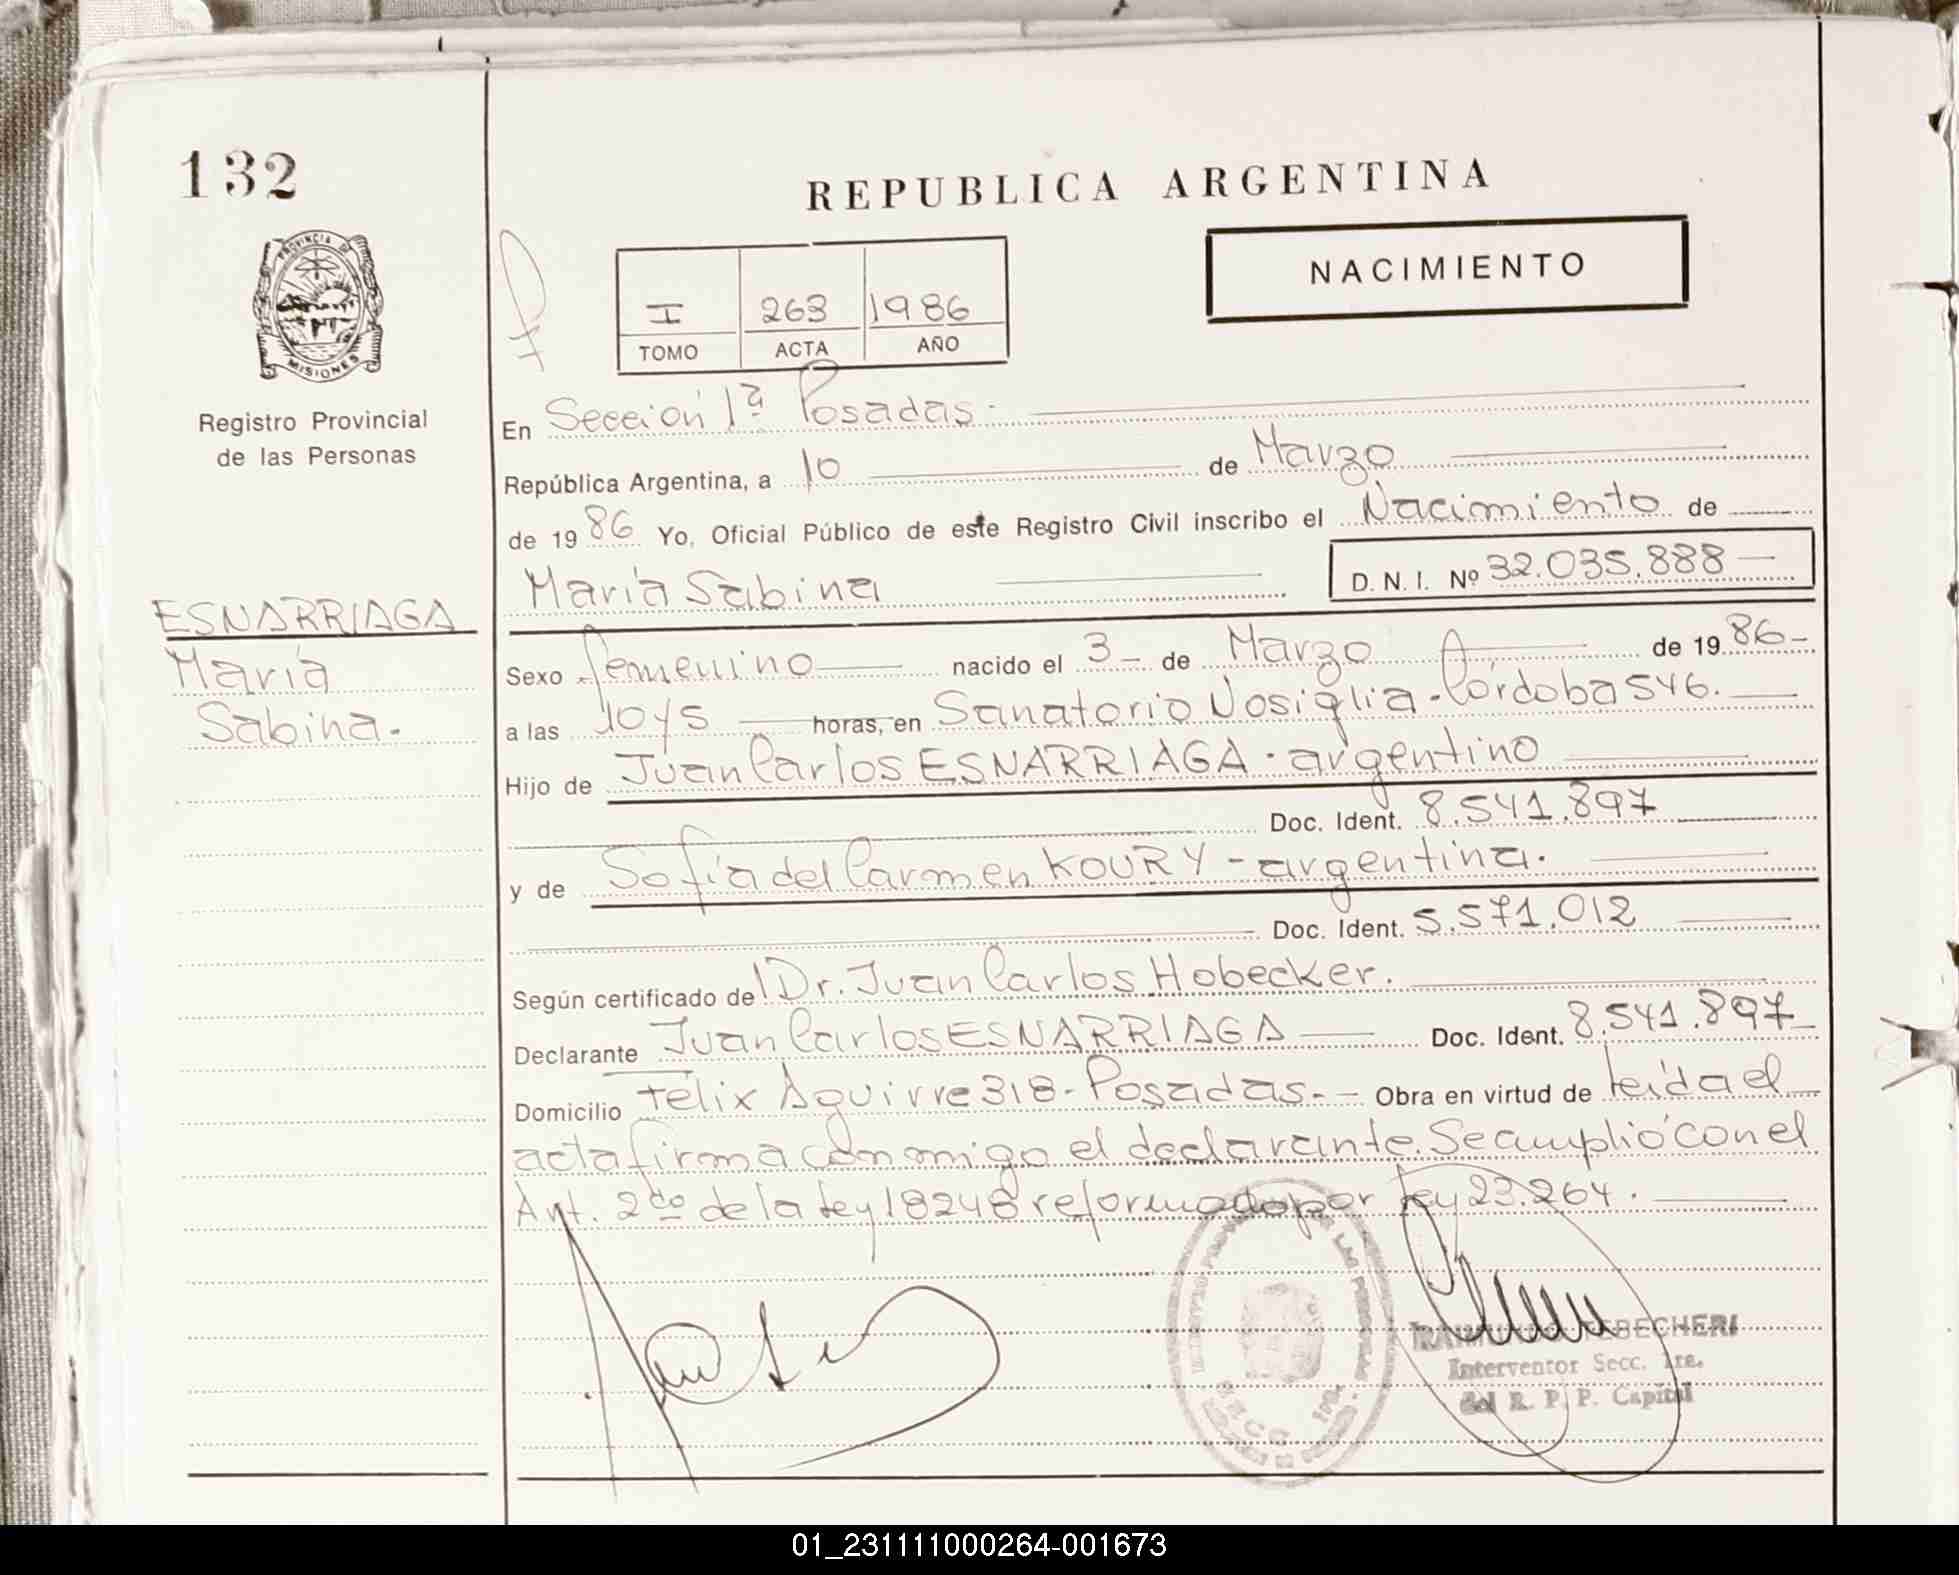 132
REPUBLICA ARGENTINA
PROVINCIA DE
MISIONES
Registro Provincial
de las Personas
NACIMIENTO
I 263 1986
TOMO ACTA AÑO
En Sección 1ª Posadas.
República Argentina, a 10 de Marzo
de 1986 Yo, Oficial Público de este Registro Civil inscribo el Nacimiento de
María Sabina D. N. I. Nº 32.035.888
ESNARRIAGA
María
Sabina.
Sexo femenino nacido el 3 de Marzo de 1986
a las 10 y 5 horas, en Sanatorio Nosiglia - Córdoba 546.
Hijo de Juan Carlos ESNARRIAGA - argentino
Doc. Ident. 8.541.897
y de Sofía del Carmen KOURY - argentina.
Doc. Ident. 5.571.012
Según certificado de Dr. Juan Carlos Hobecker.
Declarante Juan Carlos ESNARRIAGA Doc. Ident. 8.541.897
Domicilio Félix Aguirre 318 - Posadas. - Obra en virtud de leída el
acta firma conmigo el declarante. Se amplió con el
Art. 2do de la ley 18248 reformado por ley 23.264.
BECHERI
Interventor Secc. 1ra.
del R. P. P. Capital
01_231111000264-001673